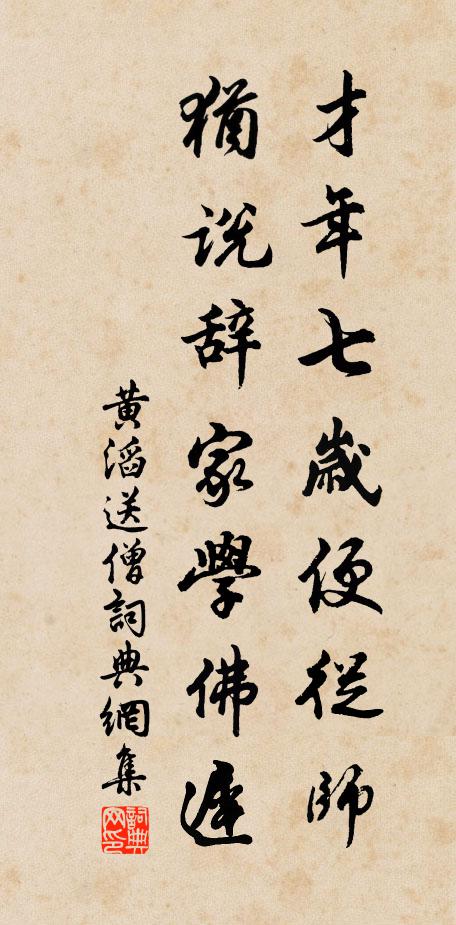 才年七歲便從師
猶説辞家學佛遲
黃滔送僧詞典網集
詞典網印